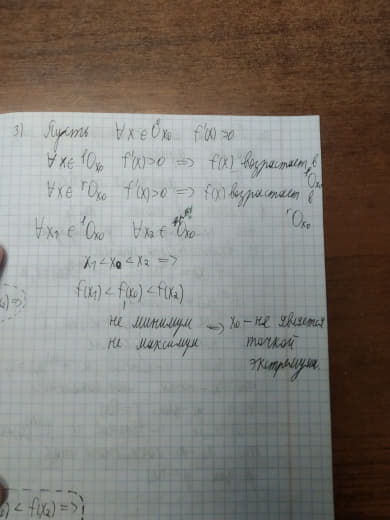 3) Пусть ∀x∈Ůx₀ f'(x)>0
∀x∈ ¹Ox₀ f'(x)>0 => f(x) возрастает в ¹Ox₀
∀x∈ ʳOx₀ f'(x)>0 => f(x) возрастает в ʳOx₀
∀x₁∈ ¹Ox₀ ∀x₂∈ Ox₀
x₁<x₀<x₂ =>
f(x₁)<f(x₀)<f(x₂)
не минимум => x₀ - не является
не максимум точкой
экстремума.
) =>
) < f(x₂) =>